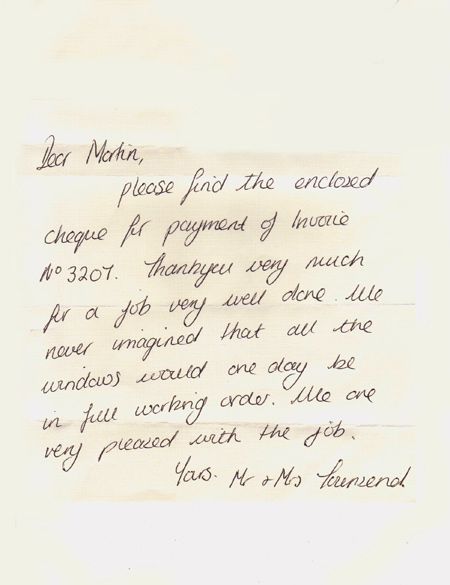 Dear Martin,
please find the enclosed
cheque for payment of Invoice
No 3207. Thankyou very much
for a job very well done. We
never imagined that all the
windows would one day be
in full working order. We are
very pleased with the job.
Yours. Mr & Mrs Townsend